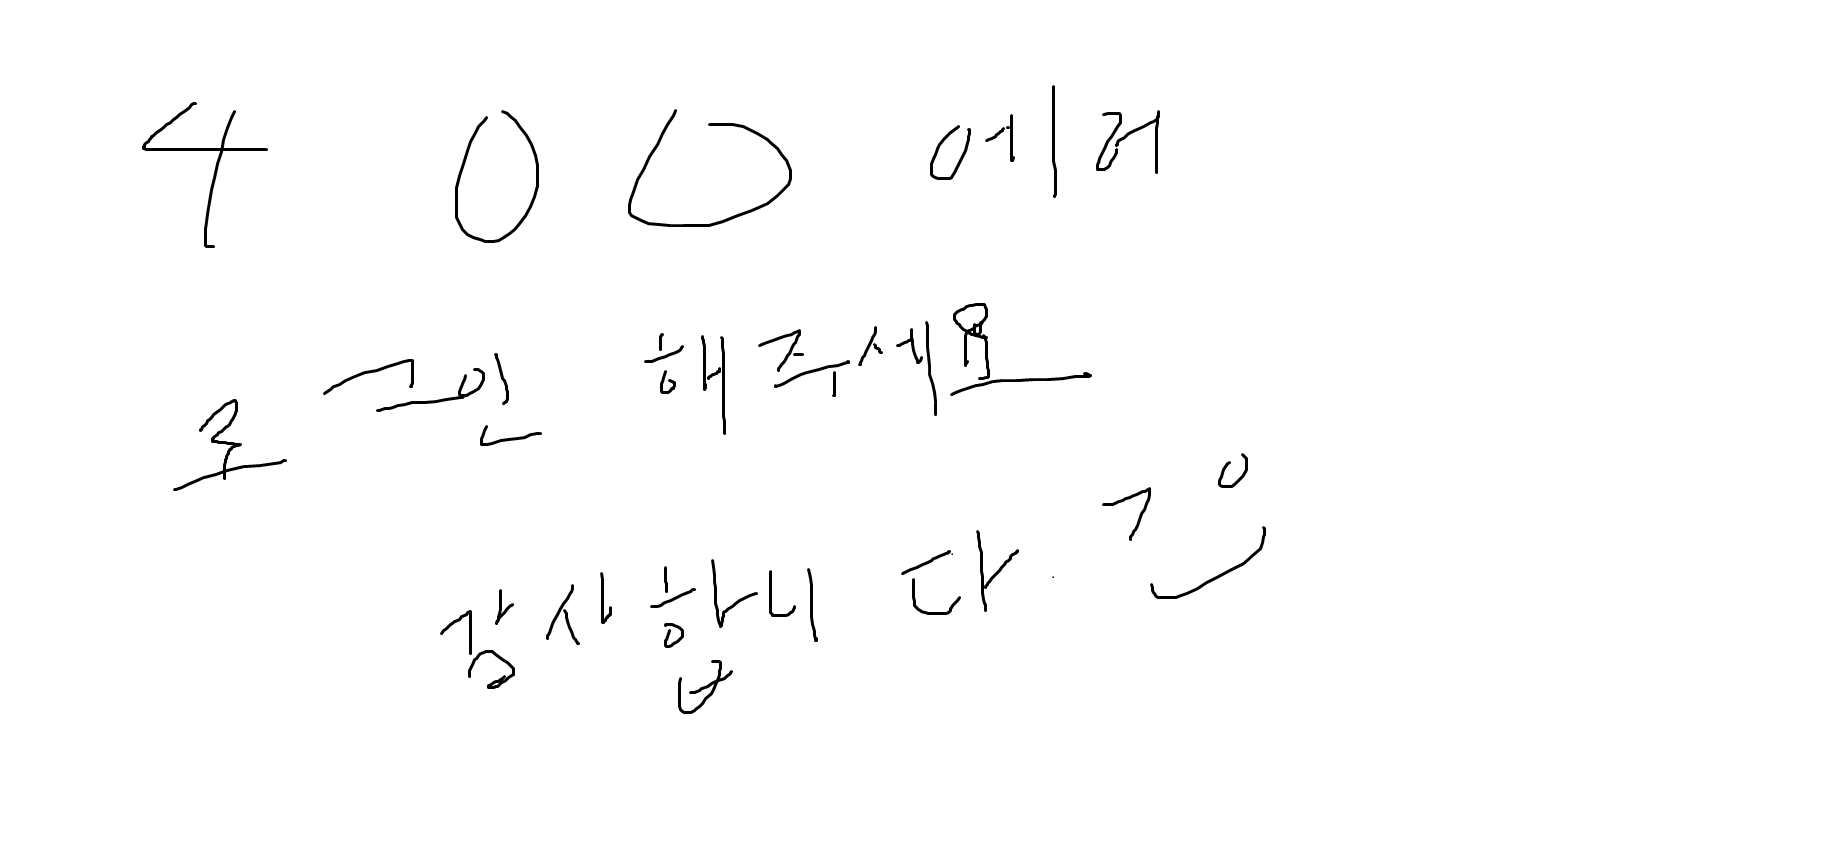 400 에러
로그인 해주세요
감사합니다.